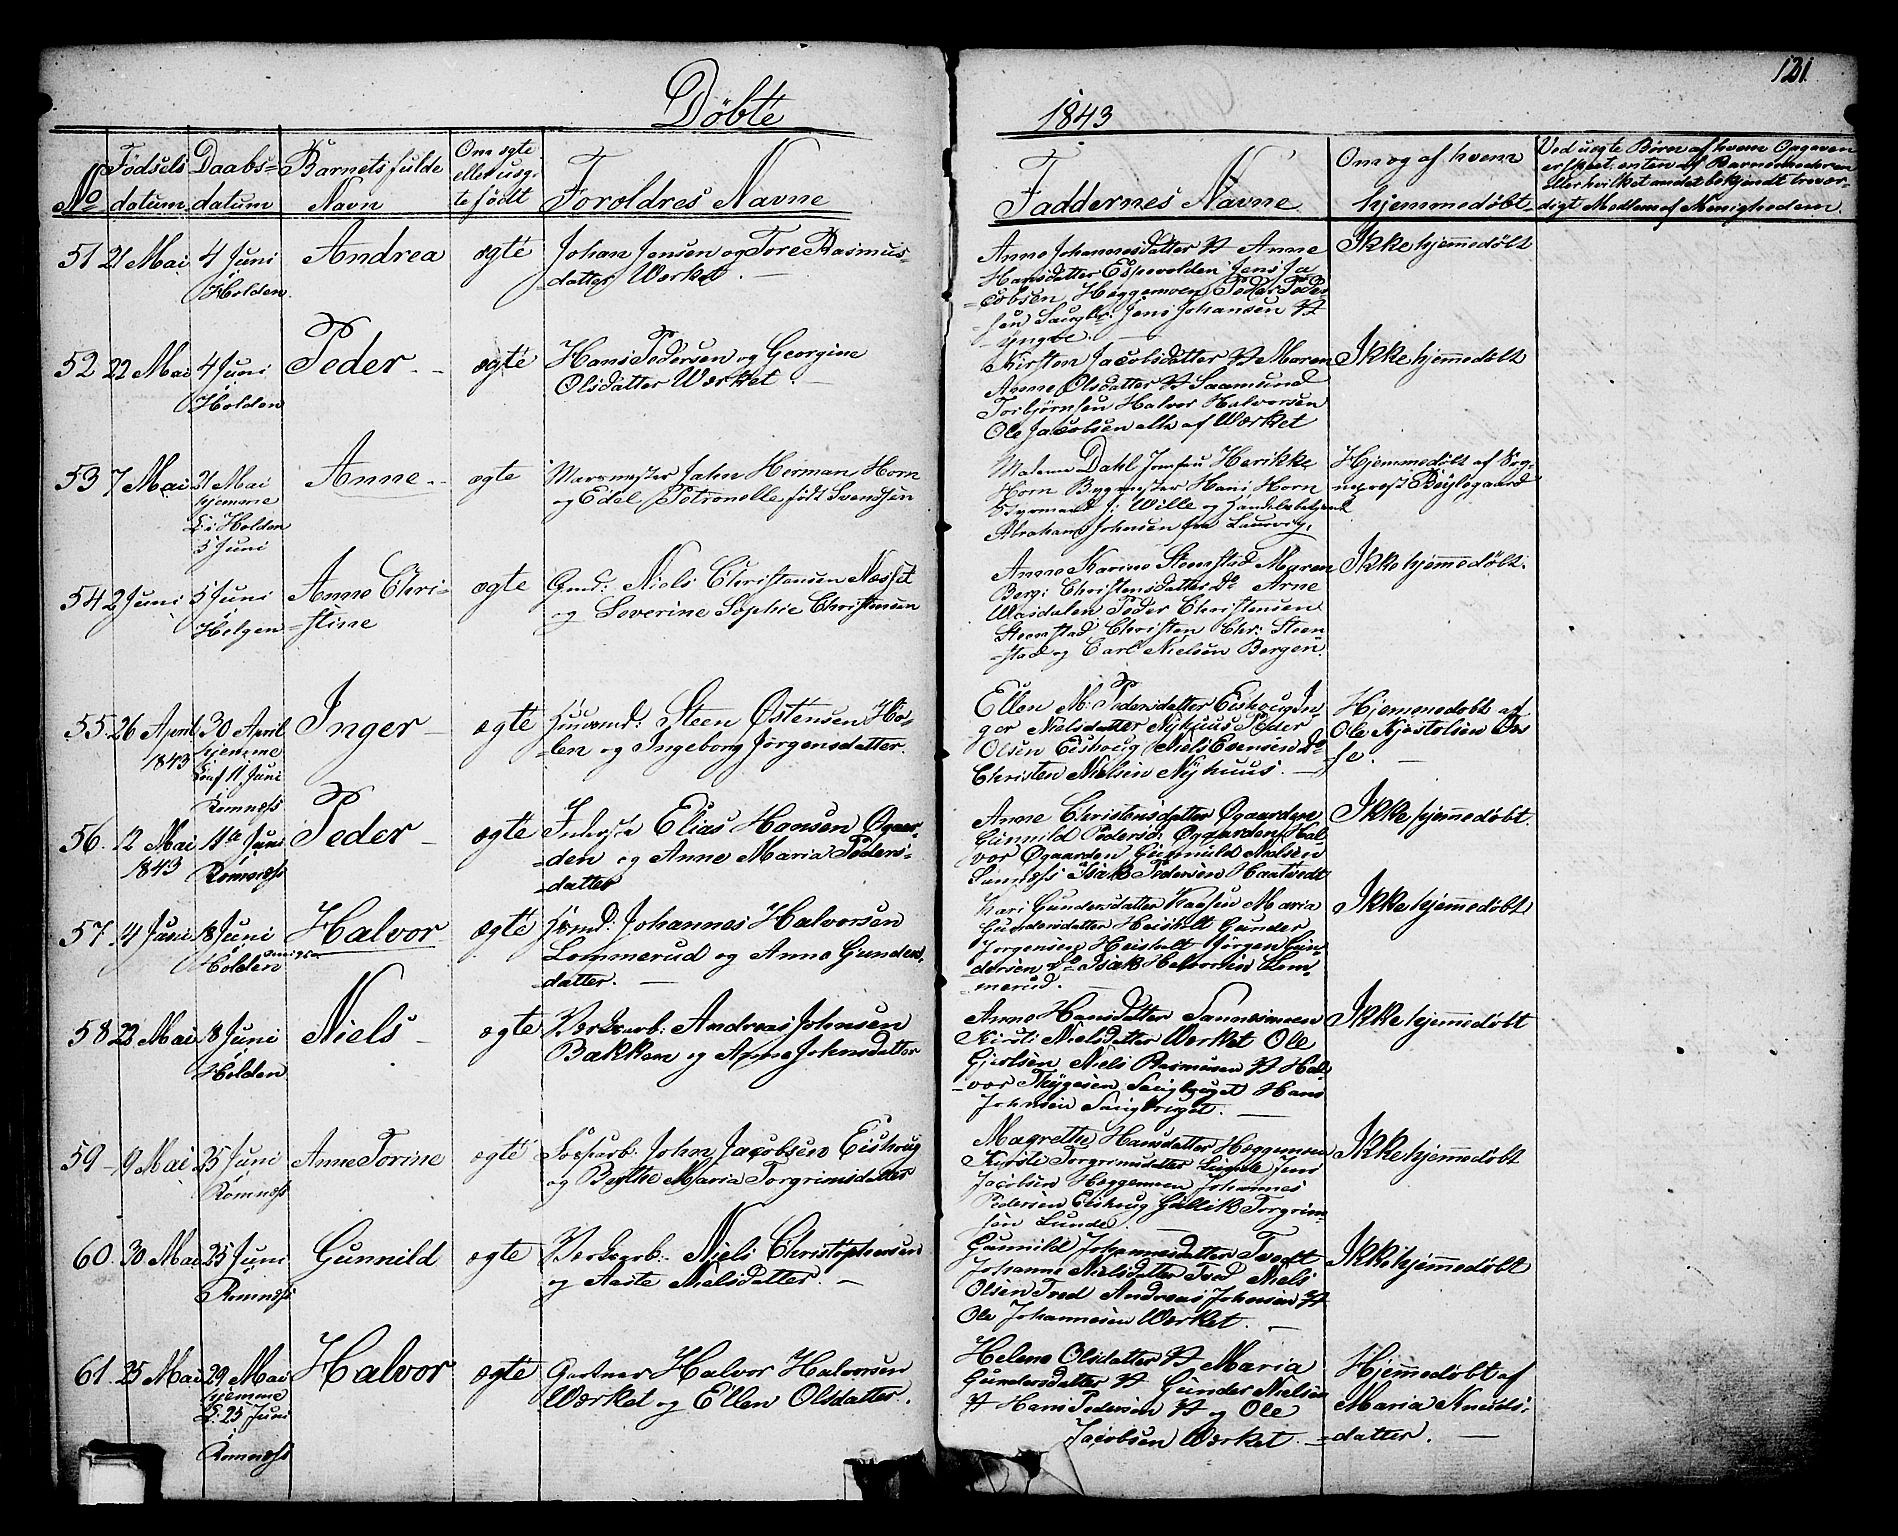 121
Døbte
1843
No
Fødsels
datum
Daabs=
datum
Barnets fulde
Navn
Om ægte
eller uæg=
te født
Foreldres Navne
Faddernes Navne
Om og af hvem
hjemmedøbt
Ved uægte Børn af hvem Opgaven
er skeet enten af Barnemoderen
eller hvilket andet bekjendt trovær=
digt Medlem af Menigheden.
51
21 Mai
4 Juni
Holden
Andrea
ægte
Johan Jensen og Tore Rasmus=
=datter Værket.
Anne Johannesdatter V Anne
Hansdatter Espevolden Jens Ja
=cobsen Heggemoen Peder Peder
=sen Saugbr: Jens Johansen V
Ikke hjemmedøbt
52
22 Mai
4 Juni
Holden
Peder
ægte
Hans Pedersen og Georgine
Olsdatter Værket.
Kirsten Jacobsdatter V Maren
Anne Olsdatter V Saamund
Torbjørnsen Halvor Halvorsen
Ole Jacobsen alle af Værket
Ikke hjemmedøbt
53
7 Mai
21 Mai
hjemme
i Holden
5 Juni
Anne
ægte
Marsmester Jahn Herman Horn
og Edel Petronelle født Svensen
Madame Dahl Jomfru Henrikke
Horn Bygmester Hans Horn
Styrmand J: Wille og Handelsbetjent
Abraham Johnsen fra Laurvig.
Hjemmedøbt af Sog=
nepræst Bøylegaard
54
2 Juni
5 Juni
Helgen
Anne Chri=
=stine
ægte
Gmd: Niels Christensen Næsset
og Severine Sophie Christensen
Anne Karine Steenstad Maren
Berg: Christensdatter Do Arne
Wasdalen Peder Christensen
Steenstad Christen Chr: Steen
=stad og Carl Nielsen Bergen.
Ikke hjemmedøbt.
55
26 April
1843
30 April
hjemme
11 Juni
Romnæss
Inger
ægte
Huusmd: Steen Østensen Ho=
len og Ingeborg Jørgensdatter.
Ellen M: Pedersdatter Eishoug In
ger Nielsdatter Nyhuus Peder
Olsen Eishoug Niels Evensen Do
Christen Nielsen Nyhuus.
Hjemmedøbt af
Ole Kjøstolsen
56.
12 Mai
1843
11te Juni
Romnæss
Peder
ægte
Inderste Elias Hansen Øgaar=
=den og Anne Maria Peders=
=datter
Anne Christensdatter Øgaarden
Gunnild Pedersen Øgaarden Hal
vor Øgaarden Gunnuld Nielsen
Sannæss Isak Pedersen Haatvedt
Ikke hjemmedøbt.
57.
4 Juni
18 Juni
Holden
Halvor
ægte
Hsmd. Johannes Halvorsen
Lommerud og Anne Gunders.
datter.
Kari Gundersdatter Kaasen Maria
Gundersdatter Heisholt Gunder
Jørgensen Heisholt Jørgen Gun=
dersen Do Isak Halvorsen Lom=
=merud.
Ikke hjemmedøbt
58
22 Mai
18 Juni
Holden
Niels
ægte
Verksarb: Andreas Johnsen
Bakken og Anne Johnsdatter
Anne Hansdatter Sannesmoen
Kirsti Nielsdatter Værket Ole
Gjertsen Niels Rasmusen V Hal=
=vor Thygesen Saugbruget Hans
Johnsen Saugbruget.
Ikke hjemmedøbt
59
9 Mai
25 Juni
Romnæss
Anne Torine
ægte
Losarb: John Jacobsen Eishoug
og Berthe Maria Torgrimsdatter
Magrethe Hansdatter Heggemoen
Kirsti Torgrimsdatter Lunde Jens
Jacobsen Heggemoen Johannes
Pedersen Eishoug Gullik Torgrim=
sen Lunde.
Ikke hjemmedøbt
60.
30 Mai
25 Juni
Romnæss
Gunnild
ægte
Verksarb: Niels Christophersen
og Aaste Nielsdatter.
Gunnild Johannesdatter Tvedt
Johanne Nielsdatter Tved Niels
Olsen Tved Andreas Johnsen V
Ole Johannesen Værket.
Ikke hjemmedøbt
61.
25 Mai
29 Mai
hjemme
25 Juni
Romnæss
Halvor
ægte
Gartner Halvor Halvorsen
Værket og Ellen Olsdatter.
Helene Olsdatter V Maria
Gundersdatter V Gunder Nielsen
V Hans Pedersen V og Ole
Jacobsen Værket.
Hjemmedøbt af
Maria Knuds=
=datter.